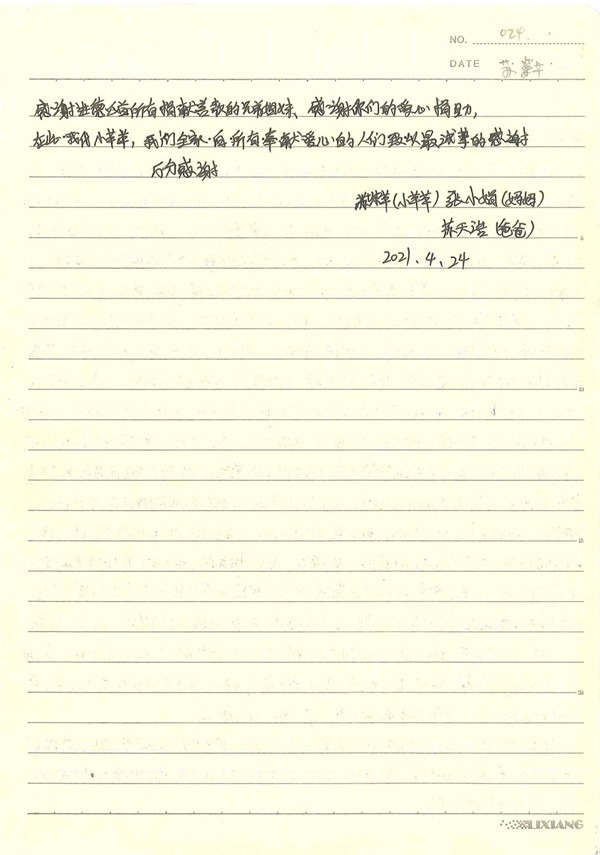 NO. 024
DATE 苏
感谢进德公益所有捐献善款的兄弟姐妹、感谢你们的爱心捐助，
在此我代小羊羊，我们全家向所有奉献爱心的人们致以最诚挚的感谢
万分感谢
(小羊羊) 张小娟(妈妈)
苏天浩(爸爸)
2021.4.24
5
10
15
20
LIXIANG